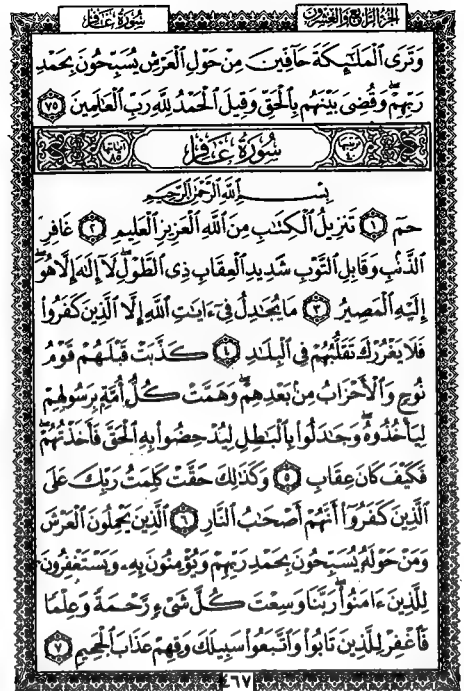 الجزء الرابع والعشرون سورة غافر
وَتَرَى ٱلْمَلَٰٓئِكَةَ حَآفِّينَ مِنْ حَوْلِ ٱلْعَرْشِ يُسَبِّحُونَ بِحَمْدِ
رَبِّهِمْ ۖ وَقُضِىَ بَيْنَهُم بِٱلْحَقِّ وَقِيلَ ٱلْحَمْدُ لِلَّهِ رَبِّ ٱلْعَٰلَمِينَ ٧٥
ترتيبها ٤٠ سورة غافر آياتها ٨٥
بِسْمِ ٱللَّهِ ٱلرَّحْمَٰنِ ٱلرَّحِيمِ
حمٓ ١ تَنزِيلُ ٱلْكِتَٰبِ مِنَ ٱللَّهِ ٱلْعَزِيزِ ٱلْعَلِيمِ ٢ غَافِرِ
ٱلذَّنۢبِ وَقَابِلِ ٱلتَّوْبِ شَدِيدِ ٱلْعِقَابِ ذِى ٱلطَّوْلِ ۖ لَآ إِلَٰهَ إِلَّا هُوَ ۖ
إِلَيْهِ ٱلْمَصِيرُ ٣ مَا يُجَٰدِلُ فِىٓ ءَايَٰتِ ٱللَّهِ إِلَّا ٱلَّذِينَ كَفَرُوا۟
فَلَا يَغْرُرْكَ تَقَلُّبُهُمْ فِى ٱلْبِلَٰدِ ٤ كَذَّبَتْ قَبْلَهُمْ قَوْمُ
نُوحٍ وَٱلْأَحْزَابُ مِنۢ بَعْدِهِمْ ۖ وَهَمَّتْ كُلُّ أُمَّةٍۭ بِرَسُولِهِمْ
لِيَأْخُذُوهُ ۖ وَجَٰدَلُوا۟ بِٱلْبَٰطِلِ لِيُدْحِضُوا۟ بِهِ ٱلْحَقَّ فَأَخَذْتُهُمْ ۖ
فَكَيْفَ كَانَ عِقَابِ ٥ وَكَذَٰلِكَ حَقَّتْ كَلِمَتُ رَبِّكَ عَلَى
ٱلَّذِينَ كَفَرُوٓا۟ أَنَّهُمْ أَصْحَٰبُ ٱلنَّارِ ٦ ٱلَّذِينَ يَحْمِلُونَ ٱلْعَرْشَ
وَمَنْ حَوْلَهُۥ يُسَبِّحُونَ بِحَمْدِ رَبِّهِمْ وَيُؤْمِنُونَ بِهِۦ وَيَسْتَغْفِرُونَ
لِلَّذِينَ ءَامَنُوا۟ رَبَّنَا وَسِعْتَ كُلَّ شَىْءٍ رَّحْمَةً وَعِلْمًا
فَٱغْفِرْ لِلَّذِينَ تَابُوا۟ وَٱتَّبَعُوا۟ سَبِيلَكَ وَقِهِمْ عَذَابَ ٱلْجَحِيمِ ٧
٤٦٧